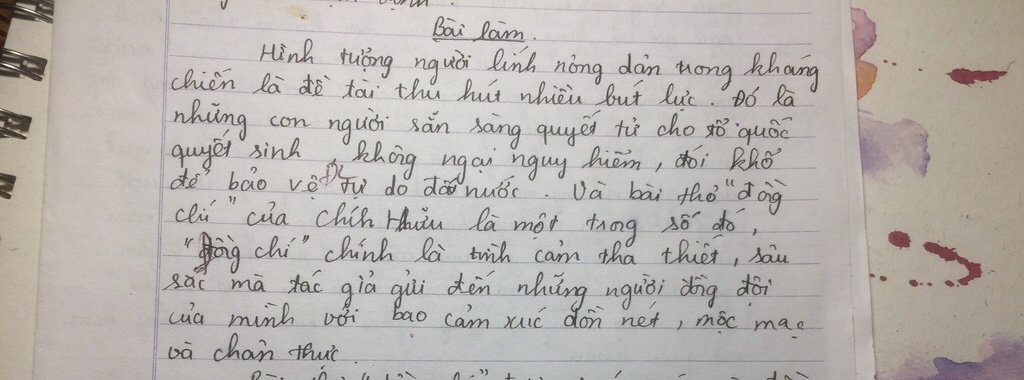 Bài làm.
Hình tượng người lính nông dân trong kháng
chiến là đề tài thu hút nhiều bút lực. Đó là
những con người sẵn sàng quyết tử cho tổ quốc
quyết sinh, không ngại nguy hiểm, đói khổ
để bảo vệ tự do đất nước. Và bài thơ "đồng
chí" của Chính Hữu là một trong số đó,
"đồng chí" chính là tình cảm tha thiết, sâu
sắc mà tác giả gửi đến những người đồng đội
của mình với bao cảm xúc dồn nét, mộc mạc
và chân thực.